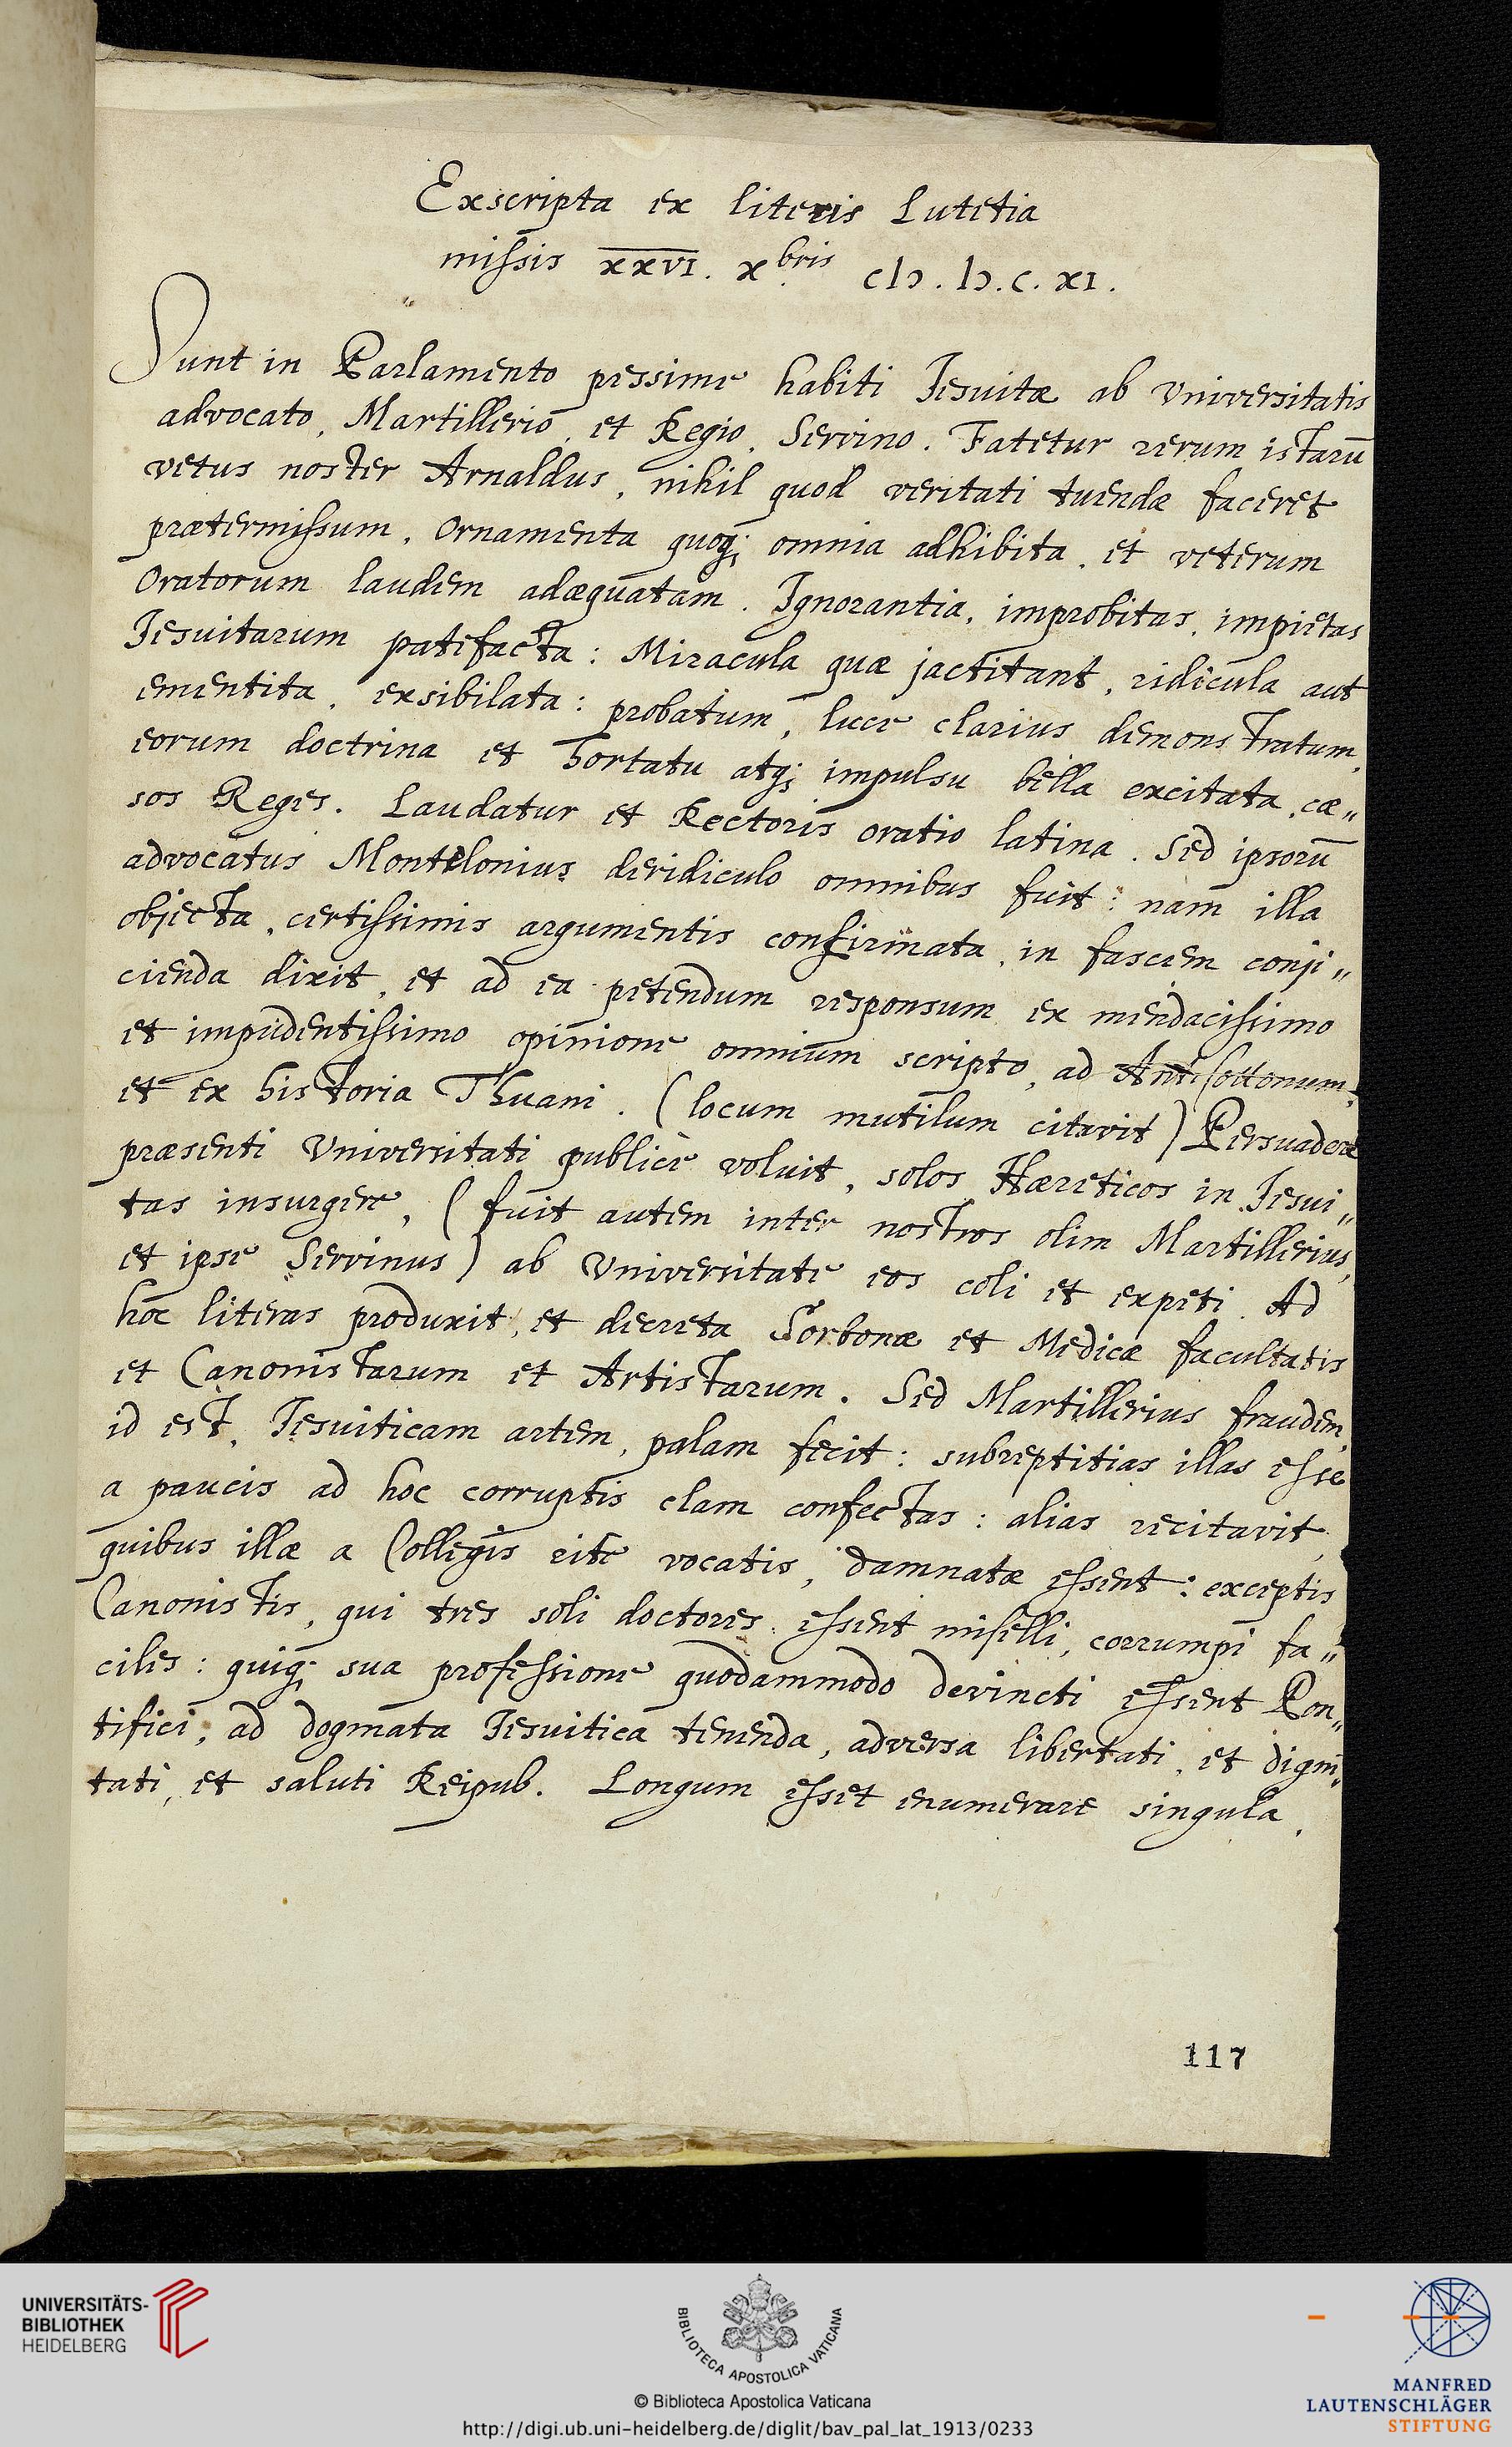 Exscripta ex literis Lutetia
missis XXVI. Xbris cIↄ.Iↄ.c.XI.
Sunt in Parlamento pessime habiti Jesuitæ ab Universitatis
advocato, Martillerio, et Regio, Servino. Fatetur rerum istarū
vetus noster Arnaldus, nihil quod veritati tuendæ faceret
prætermissum. Ornamenta quoq; omnia adhibita, et veterum
Oratorum laudem adæquatam. Ignorantia, improbitas, impietas
Jesuitarum patefacta: Miracula quæ jactitant, ridicula aut
ementita, exsibilata: probatum, luce clarius demonstratum,
eorum doctrina et hortatu atq; impulsu bella excitata, cæ„
sos Reges. Laudatur et Rectoris oratio latina. Sed ipsorū
advocatus Montelonius deridiculo omnibus fuit: nam illa
objecta, certissimis argumentis confirmata, in fascem conji„
cienda dixit, et ad ea petendum responsum ex mendacissimo
et impudentissimo opinione omnium scripto, ad AntiCottonum,
et ex historia Thuani. (locum mutilum citavit) Persuadere
præsenti Universitati publicè voluit, solos Hæreticos in Jesui„
tas insurgere, (fuit autem inter nostros olim Martillerius,
et ipse Servinus) ab Universitate eos coli et expeti. Ad
hoc literas produxit, et decreta Sorbonæ et Medicæ facultatis
et Canonistarum et Artistarum. Sed Martillerius fraudem,
id est, Jesuiticam artem, palam fecit: subreptitias illas esse
a paucis ad hoc corruptis clam confectas: alias recitavit,
quibus illæ a Collegis rite vocatis, damnatæ essent: exceptis
Canonistis, qui tres soli doctores essent miselli, corrumpi fa„
ciles: quiq; sua professione quodammodo devincti essent Pon„
tifici, ad dogmata Jesuitica tenenda, adversa libertati, et digni„
tati, et saluti Reipub. Longum esset enumerare singula.
117
UNIVERSITÄTS-
BIBLIOTHEK
HEIDELBERG
BIBLIOTECA APOSTOLICA VATICANA
© Biblioteca Apostolica Vaticana
http://digi.ub.uni-heidelberg.de/diglit/bav_pal_lat_1913/0233
MANFRED
LAUTENSCHLÄGER
STIFTUNG